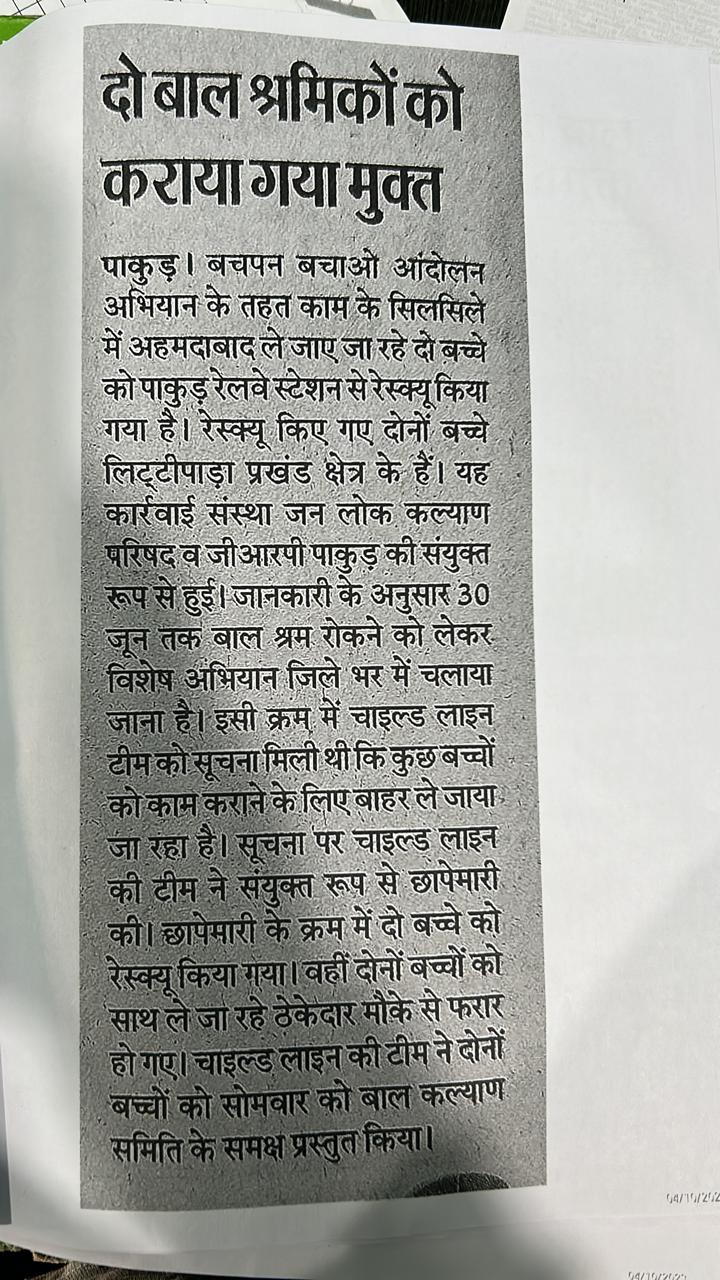 दो बाल श्रमिकों को
कराया गया मुक्त
पाकुड़। बचपन बचाओ आंदोलन
अभियान के तहत काम के सिलसिले
में अहमदाबाद ले जाए जा रहे दो बच्चे
को पाकुड़ रेलवे स्टेशन से रेस्क्यू किया
गया है। रेस्क्यू किए गए दोनों बच्चे
लिट्टीपाड़ा प्रखंड क्षेत्र के हैं। यह
कार्रवाई संस्था जन लोक कल्याण
परिषद व जीआरपी पाकुड़ की संयुक्त
रूप से हुई। जानकारी के अनुसार 30
जून तक बाल श्रम रोकने को लेकर
विशेष अभियान जिले भर में चलाया
जाना है। इसी क्रम में चाइल्ड लाइन
टीम को सूचना मिली थी कि कुछ बच्चों
को काम कराने के लिए बाहर ले जाया
जा रहा है। सूचना पर चाइल्ड लाइन
की टीम ने संयुक्त रूप से छापेमारी
की। छापेमारी के क्रम में दो बच्चे को
रेस्क्यू किया गया। वहीं दोनों बच्चों को
साथ ले जा रहे ठेकेदार मौके से फरार
हो गए। चाइल्ड लाइन की टीम ने दोनों
बच्चों को सोमवार को बाल कल्याण
समिति के समक्ष प्रस्तुत किया।